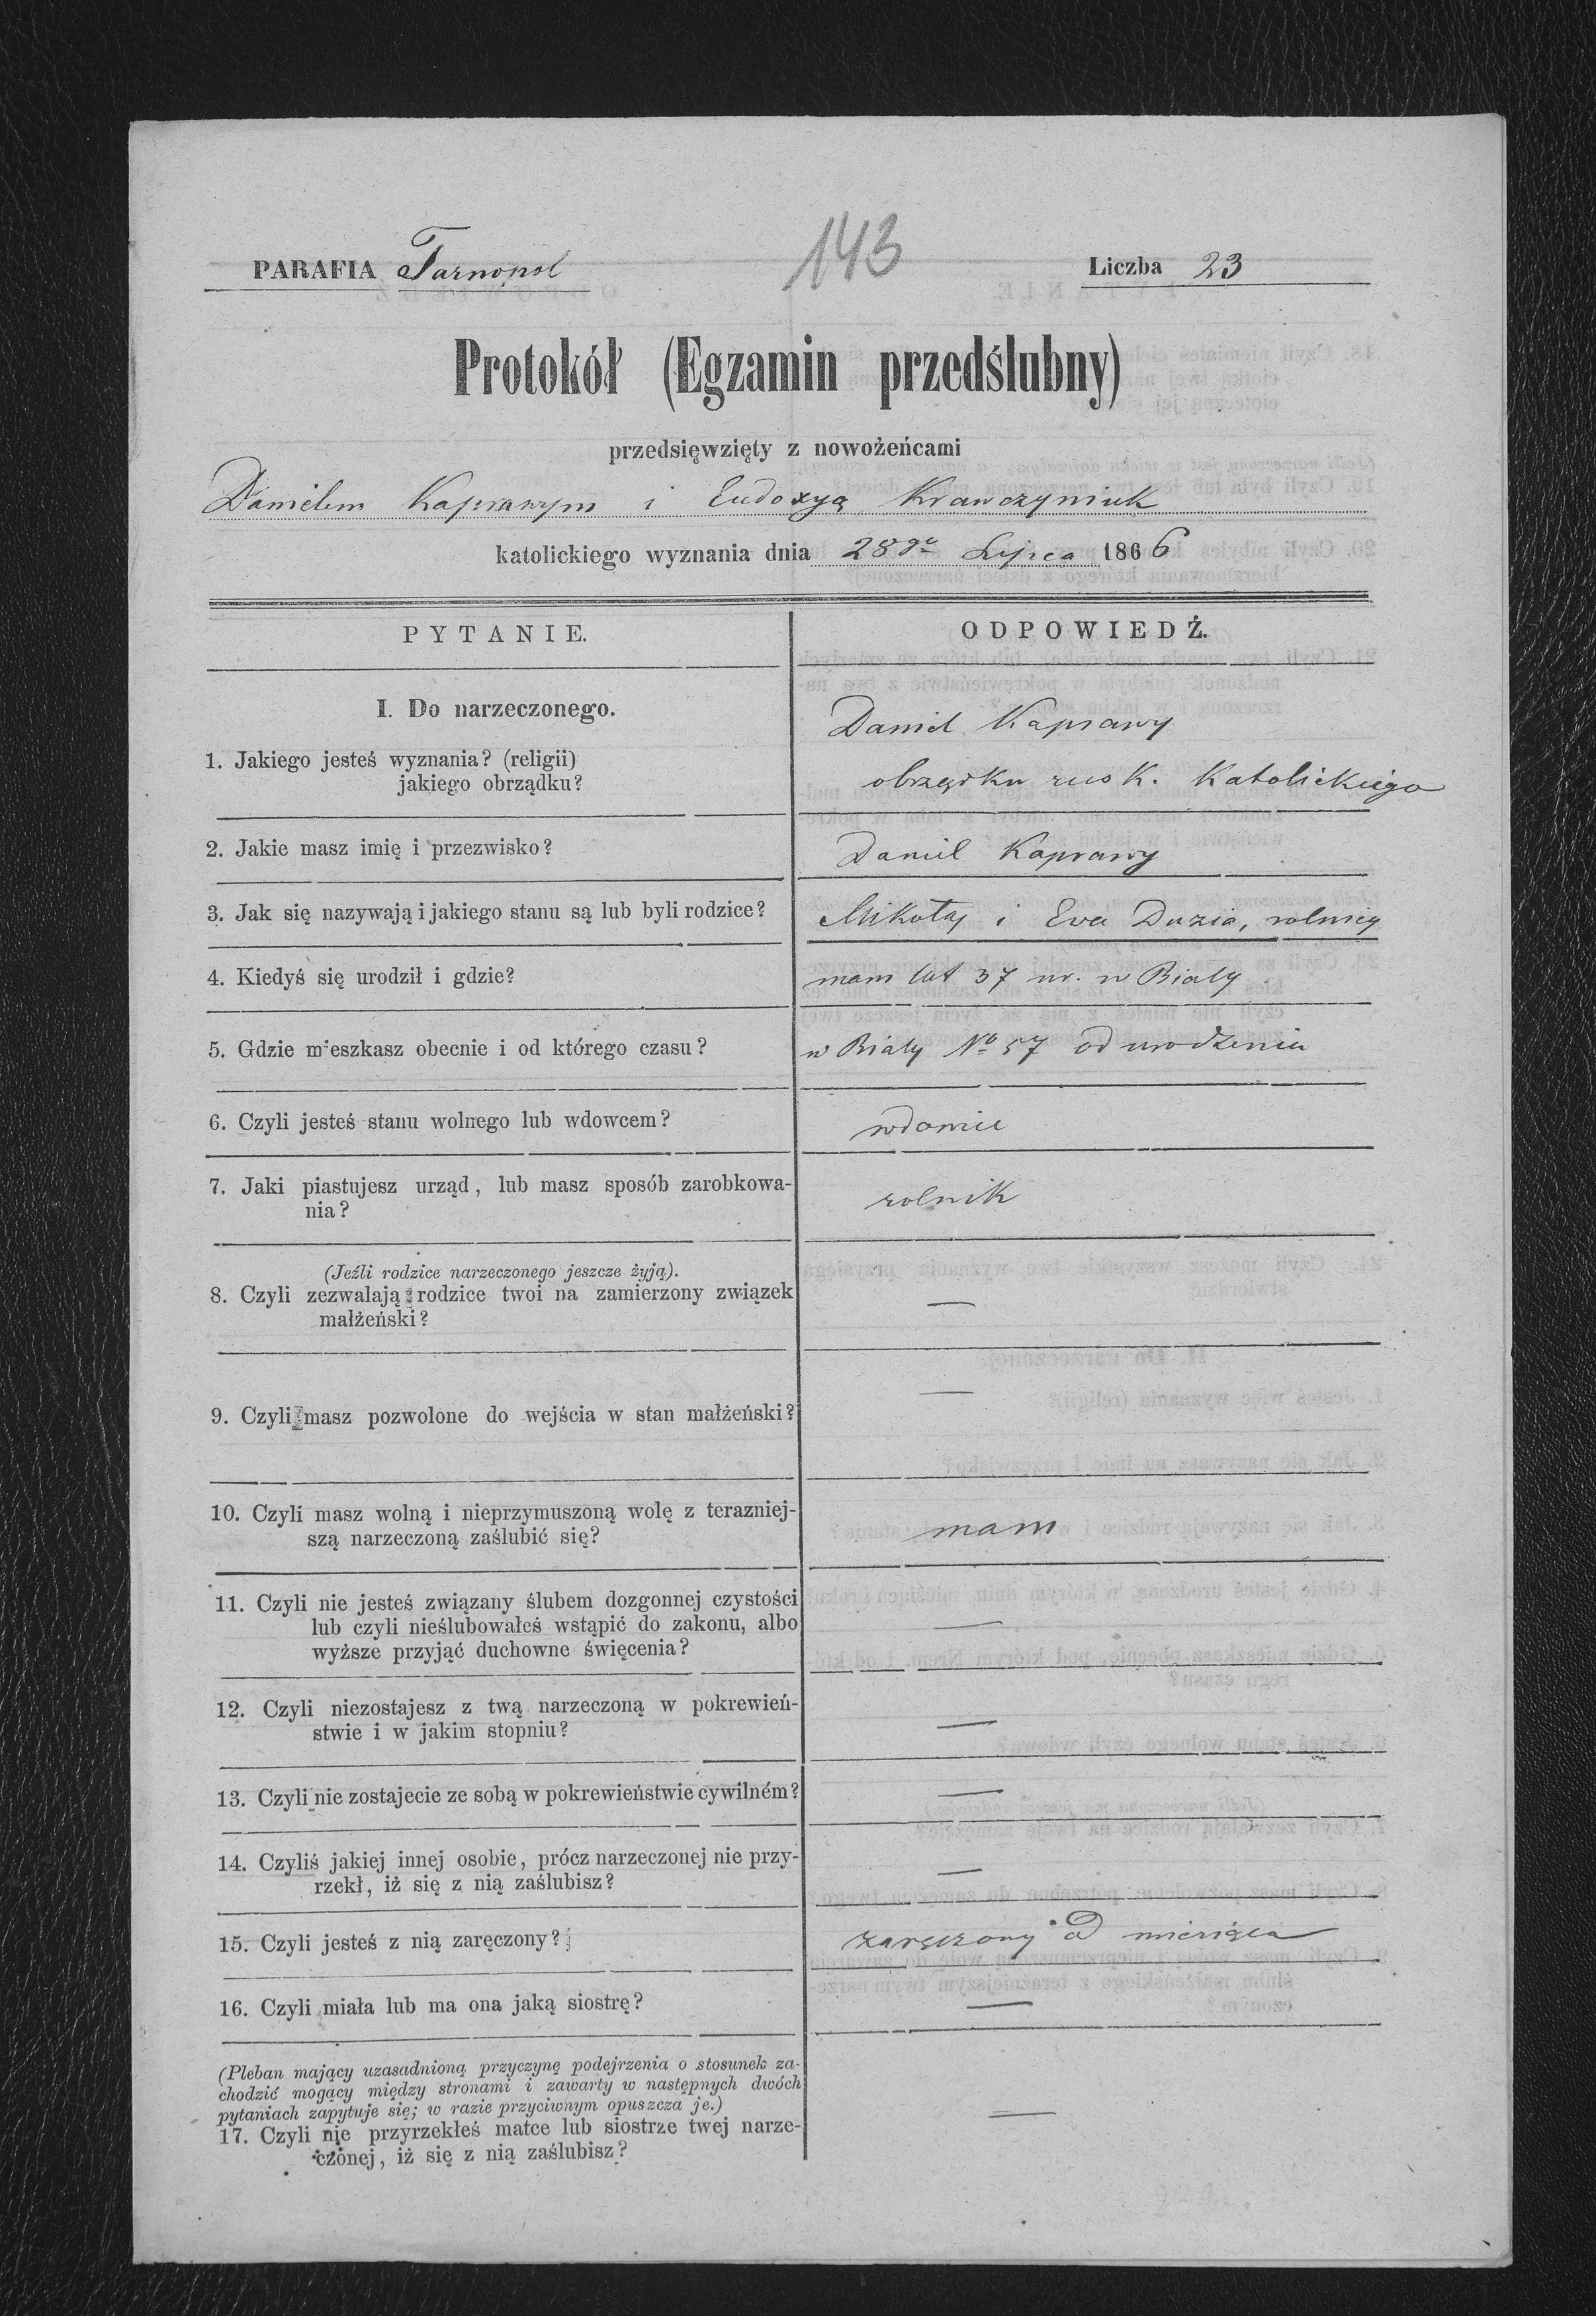 143
PARAFIA Tarnopol
Liczba 23
Protokół (Egzamin przedślubny)
przedsięwzięty z nowożeńcami
Danielem Kaprawym i Eudoxyą Krawczyniuk
katolickiego wyznania dnia 28go Lipca 1866
PYTANIE.
ODPOWIEDŹ.
I. Do narzeczonego.
Daniel Kaprawy
1. Jakiego jesteś wyznania? (religii)
jakiego obrządku?
obrządku rusk. Katolickiego
2. Jakie masz imię i przezwisko?
Daniel Kaprawy
3. Jak się nazywają i jakiego stanu są lub byli rodzice?
Mikołaj i Ewa Duzia, rolnicy
4. Kiedyś się urodził i gdzie?
mam lat 37 ur. w Biały
5. Gdzie mieszkasz obecnie i od którego czasu?
w Biały No 57 od urodzenia
6. Czyli jesteś stanu wolnego lub wdowcem?
wdowiec
7. Jaki piastujesz urząd, lub masz sposób zarobkowa-
nia?
rolnik
(Jeźli rodzice narzeczonego jeszcze żyją).
8. Czyli zezwalają rodzice twoi na zamierzony związek
małżeński?
—
9. Czyli masz pozwolone do wejścia w stan małżeński?
—
10. Czyli masz wolną i nieprzymuszoną wolę z terazniej-
szą narzeczoną zaślubić się?
mam
11. Czyli nie jesteś związany ślubem dozgonnej czystości
lub czyli nieślubowałeś wstąpić do zakonu, albo
wyższe przyjąć duchowne święcenia?
—
12. Czyli niezostajesz z twą narzeczoną w pokrewień-
stwie i w jakim stopniu?
—
13. Czyli nie zostajecie ze sobą w pokrewieństwie cywilném?
—
14. Czyliś jakiej innej osobie, prócz narzeczonej nie przy-
rzekł, iż się z nią zaślubisz?
—
15. Czyli jesteś z nią zaręczony?
zaręczony od miesiąca
16. Czyli miała lub ma ona jaką siostrę?
—
(Pleban mający uzasadnioną przyczynę podejrzenia o stosunek za-
chodzić mogący między stronami i zawarty w następnych dwóch
pytaniach zapytuje się; w razie przyciwnym opuszcza je.)
17. Czyli nie przyrzekłeś matce lub siostrze twej narze-
czonej, iż się z nią zaślubisz?
—